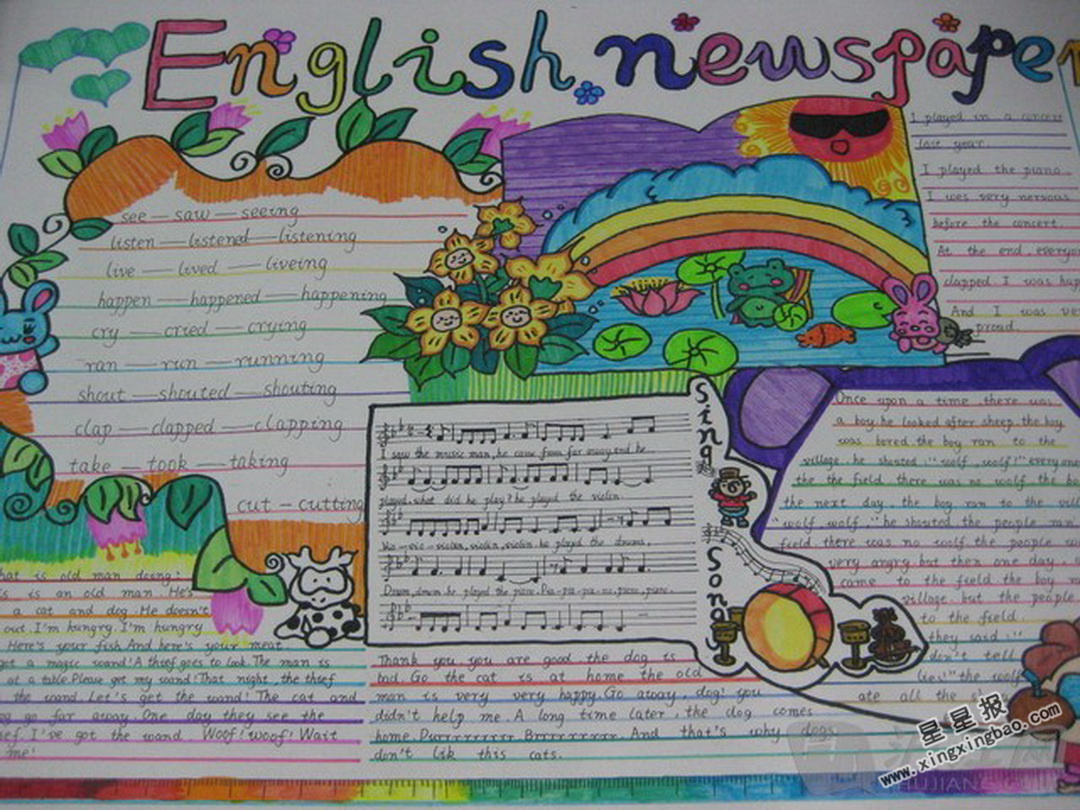 English newspaper
see — saw — seeing
listen — listened — listening
live — lived — liveing
happen — happened — happening
cry — cried — crying
ran — run — running
shout — shouted — shouting
clap — clapped — clapping
take — took — taking
cut - cutting
I played in a concert
last year.
I played the piano
I was very nervous
before the concert.
At the end, everyo
clapped. I was hap
And I was ve
proud.
Sing
Song
I saw the music man, he came from far away and he
played, what did he play? he played the violin.
Vio-vio-violin, violin, violin he played the drums,
Drum, drum he played the piano. Pia-pia-pia-no, piano, piano.
Once upon a time there was
a boy. he looked after sheep. the boy
was bored. the boy ran to the
village. he shouted: "wolf, wolf!" every one
the the field. there was no wolf. the bo
the next day, the boy ran to the vill
"wolf wolf," he shouted the people ran
field there was no wolf the people w
very angry. but then one day. a
came to the field. the boy r
village. but the people
to the field.
they said:"
don't tell
lie!" the wolf
ate all the sh
hat is old man doing?
is is an old man. He's
a cat and dog. He doesn't
out. I'm hungry. I'm hungry
Here's your fish. And here's your meat
got a magic wand! A thief goes to look. The man is
at a table. Please get my wand! That night, the thief
the wand. Let's get the wand! The cat and
g go far away. One day they see the
ief. I've got the wand. Woof! woof! Wait
me!
Thank you, you are good. the dog is
bad. Go the cat is at home the old
man is very very happy. Go away, dog! you
didn't help me. A long time later, the dog comes
home. Purrrrrrrrr Brrrrrrrrr. And that's why dogs
don't lik this cats.
星星报
www.xingxingbao.com